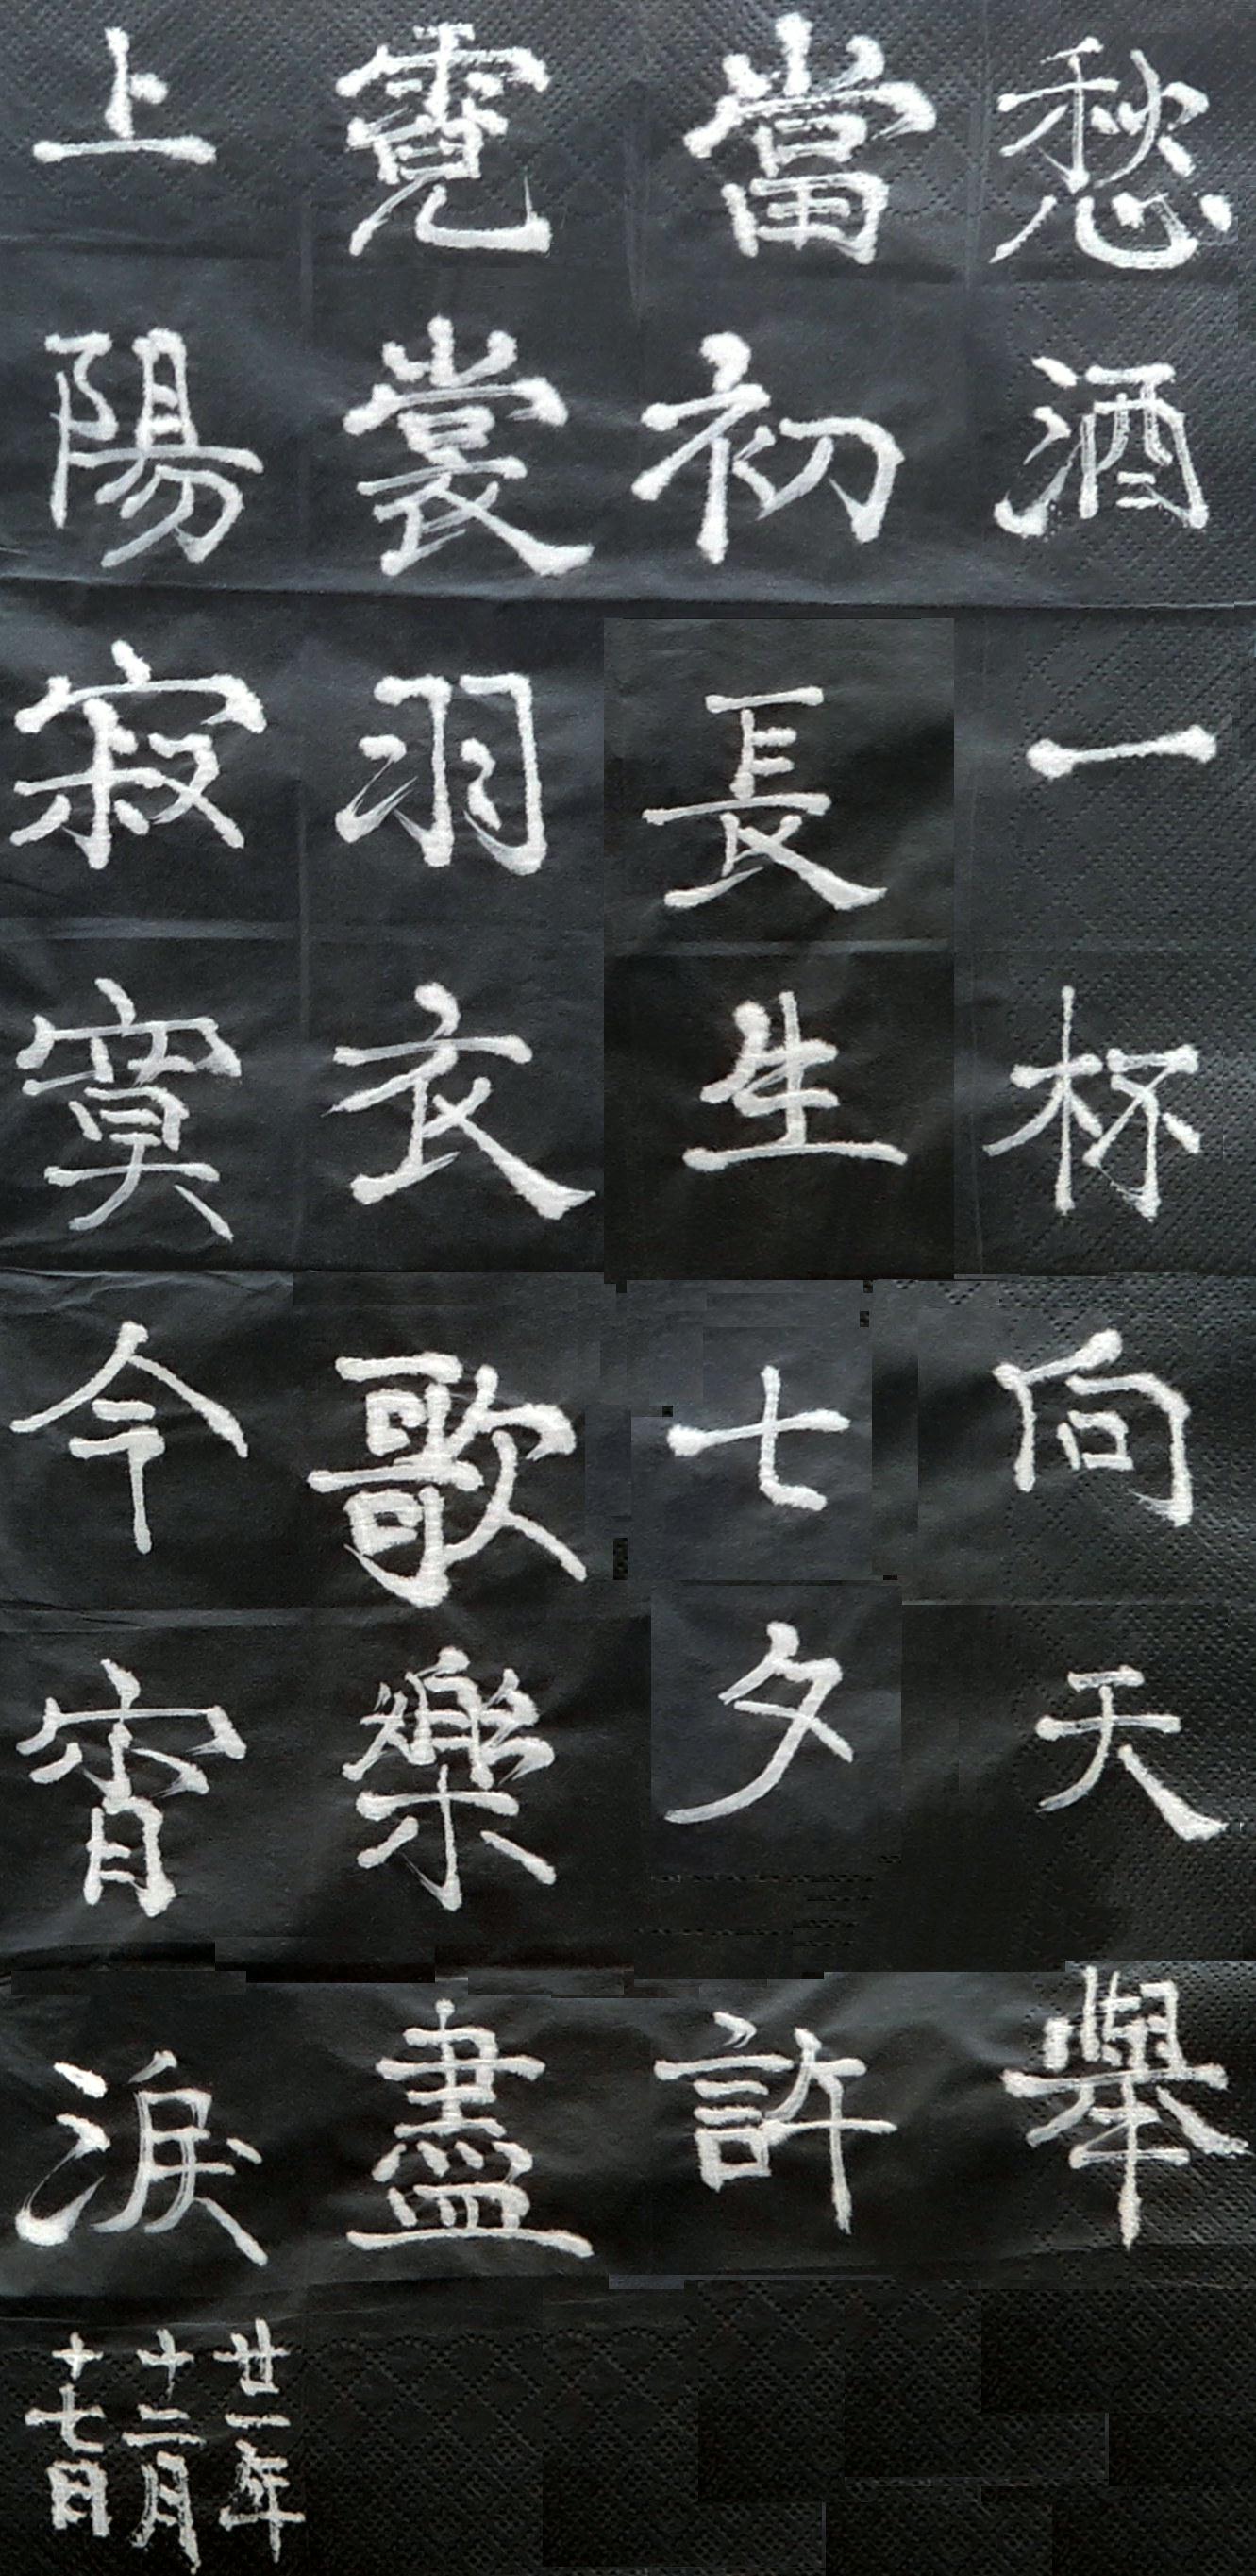 愁酒一杯向天舉
當初長生七夕許
霓裳羽衣歌樂盡
上陽寂寞今宵淚
廿一年
十二月
十七日